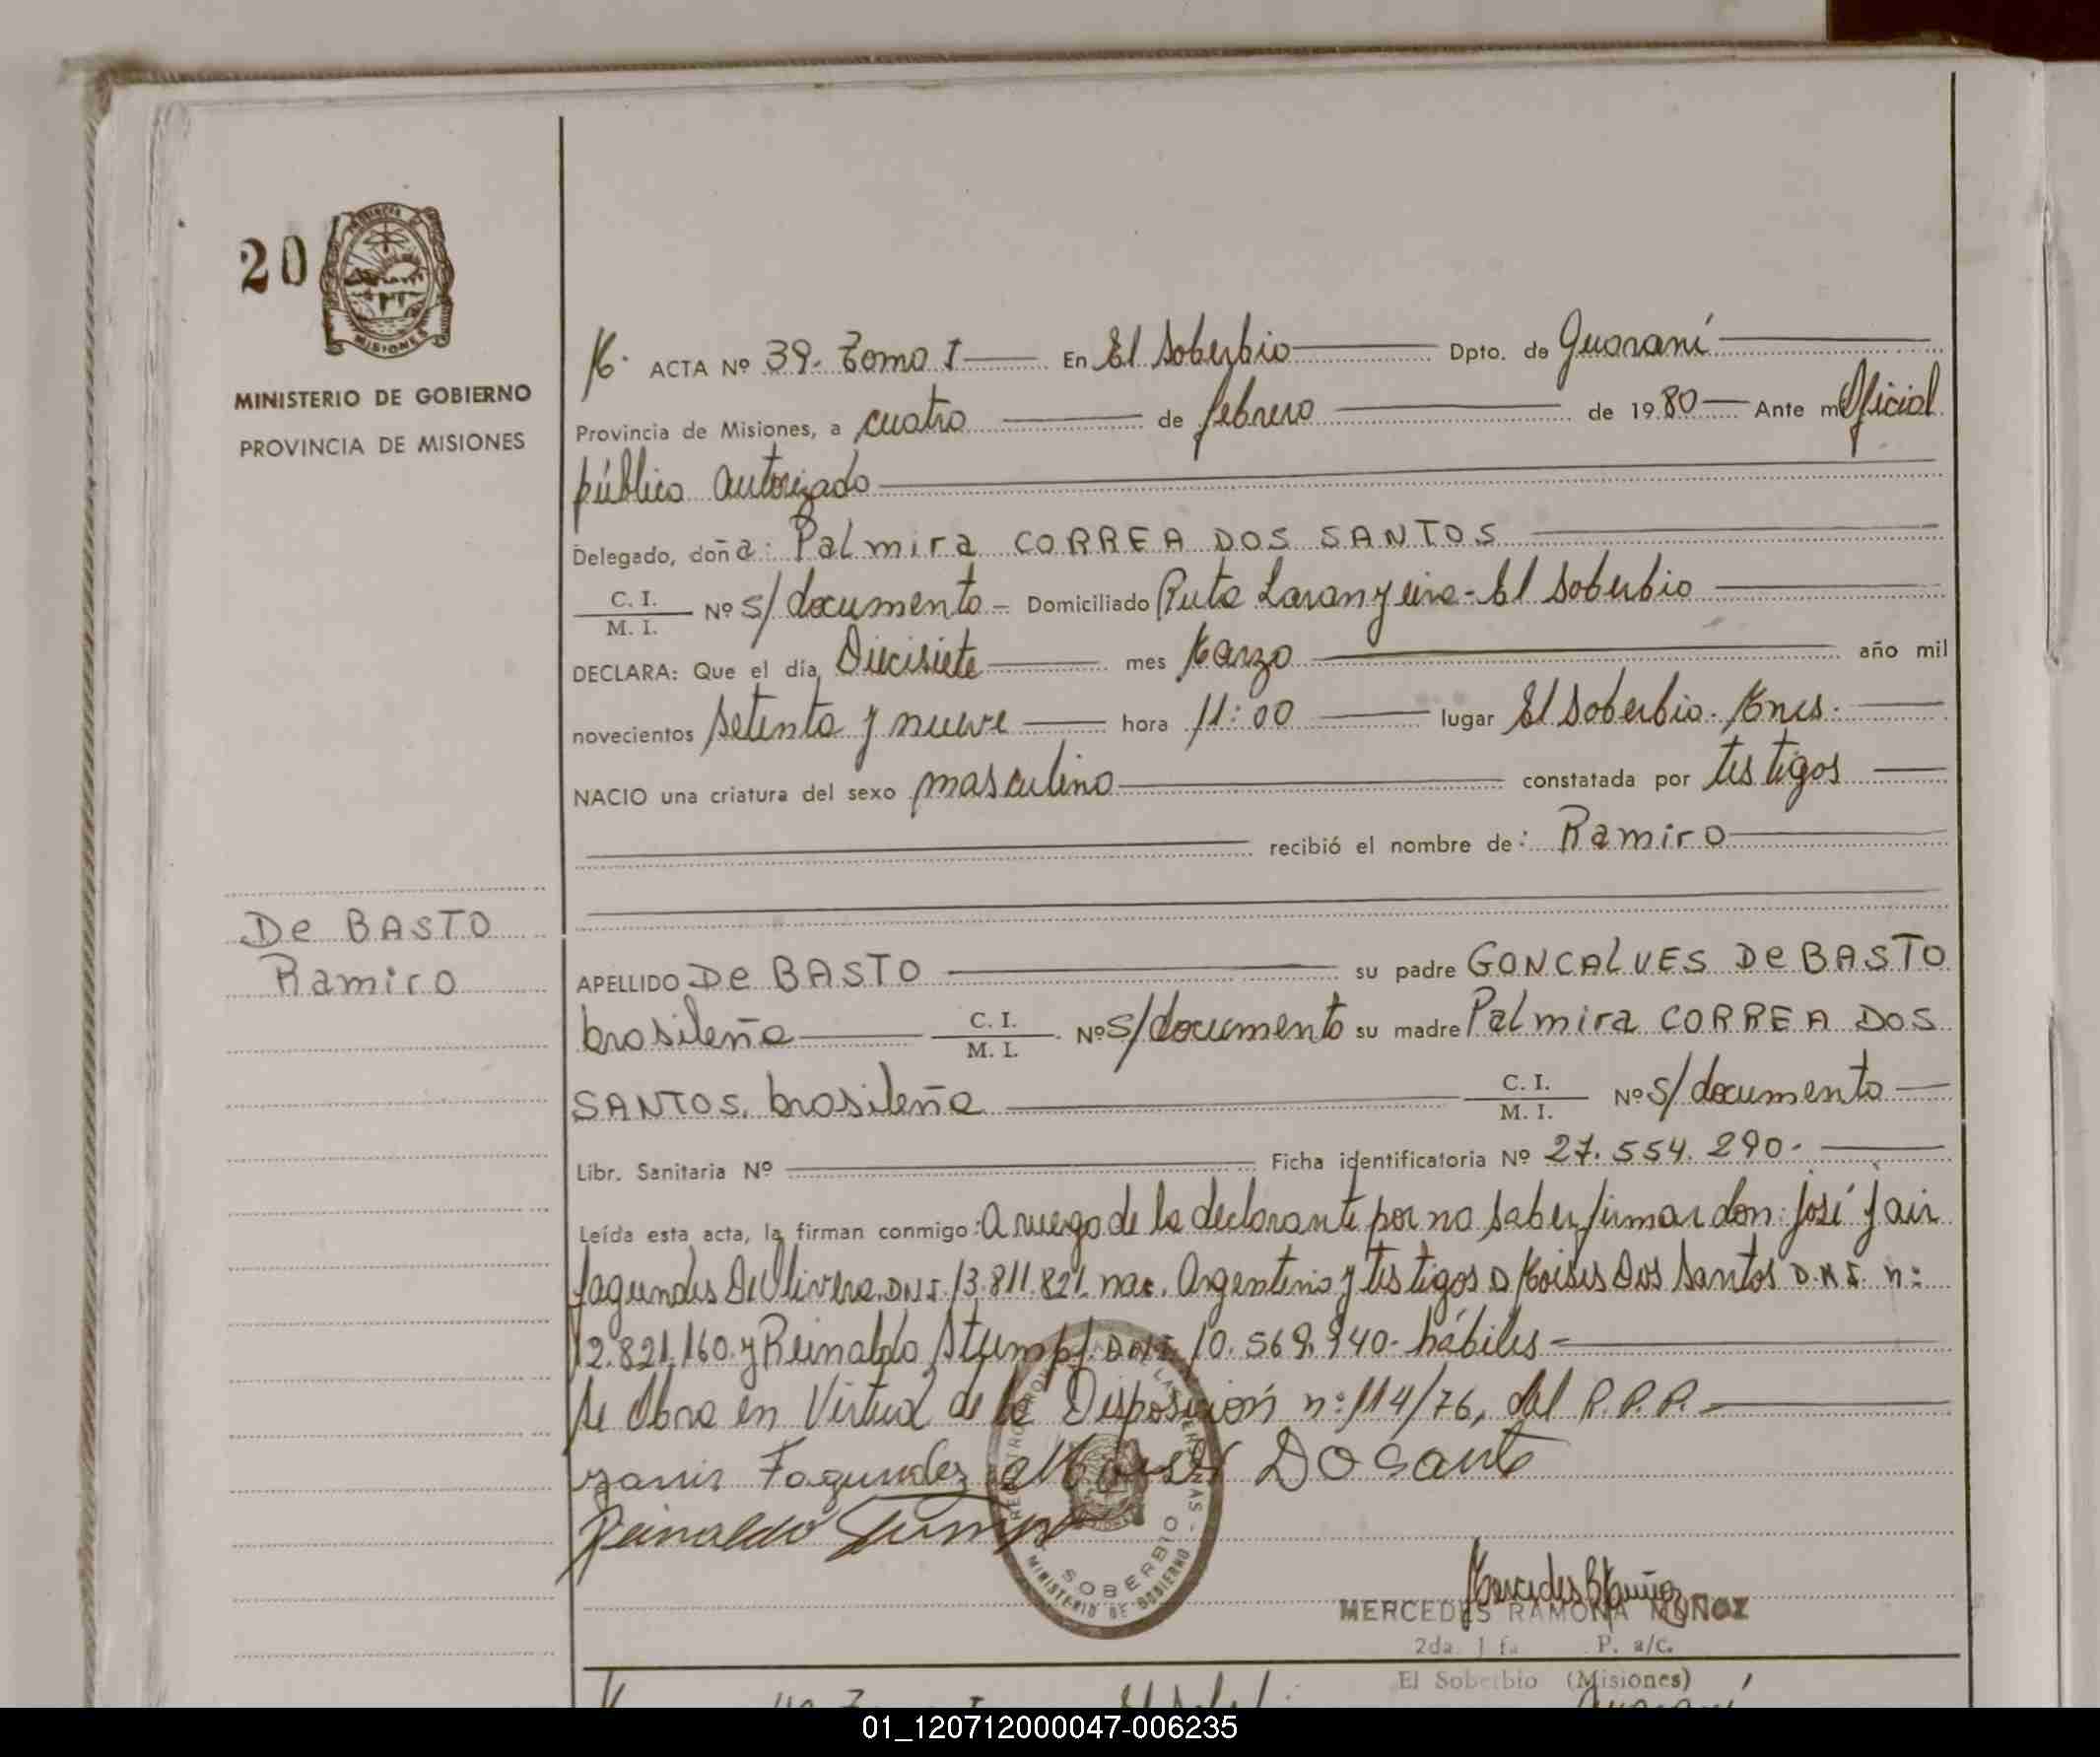 20
PROVINCIA
MISIONES
MINISTERIO DE GOBIERNO
PROVINCIA DE MISIONES
De BASTO
Ramiro
M. ACTA Nº 39. Tomo I En El Soberbio Dpto. de Guaraní
Provincia de Misiones, a cuatro de febrero de 1980 Ante mi Oficial
público autorizado
Delegado, doña: Palmira CORREA DOS SANTOS
C. I. / M. I. Nº s/documento - Domiciliado Ruta Laranyeira - El Soberbio
DECLARA: Que el día Diecisiete mes Marzo año mil
novecientos setenta y nueve hora 11:00 lugar El Soberbio. Mnes.
NACIO una criatura del sexo masculino constatada por testigos
recibió el nombre de: Ramiro
APELLIDO De BASTO su padre GONCALVES De BASTO
brasileña C. I. / M. I. Nº s/documento su madre Palmira CORREA DOS
SANTOS. brasileña C. I. / M. I. Nº s/documento
Libr. Sanitaria Nº Ficha identificatoria Nº 27.554.290.
Leída esta acta, la firman conmigo: A ruego de la declarante por no saber firmar don: José Jair
Fagundes De Olivera. DNI. 13.811.821. nac. Argentino y testigos D Moisés Dos Santos D.N.I. n:
12.821.160. y Reinaldo Stumpf. DNI. 10.569.940. hábiles -
Se Obra en Virtud de la Disposición n: 114/76, del R.P.P. -
Fagundez Moises DO Sante
Reinaldo Stumpf
SOBERBIO
MINISTERIO DE GOBIERNO
Mercedes R Muñoz
MERCEDES RAMONA MUÑOZ
2da. P. a/c.
El Soberbio (Misiones)
01_120712000047-006235